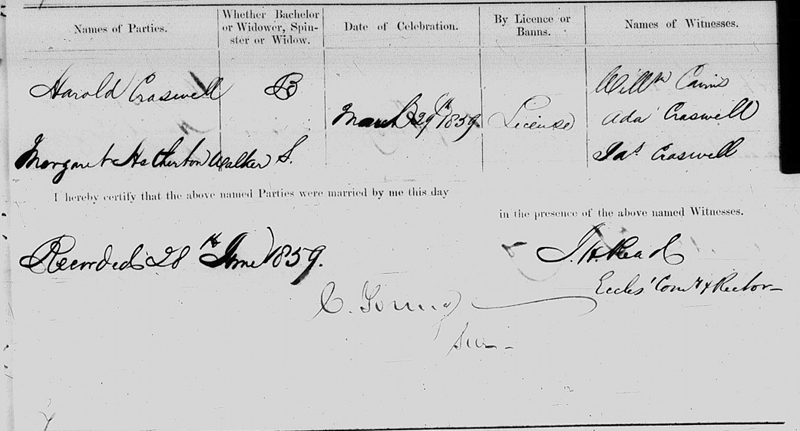 Names of Parties.
Whether Bachelor or Widower, Spinster or Widow.
Date of Celebration.
By Licence or Banns.
Names of Witnesses.
Harold Craswell
B
March 29th 1859.
License
Willm Cairns
Ada Craswell
Jas Craswell
Margaret Hatherton Walker
S.
I hereby certify that the above named Parties were married by me this day
in the presence of the above named Witnesses.
Recorded 28th June 1859.
J. H. Read
Eccles' Comy & Rector
C. Young
Sur